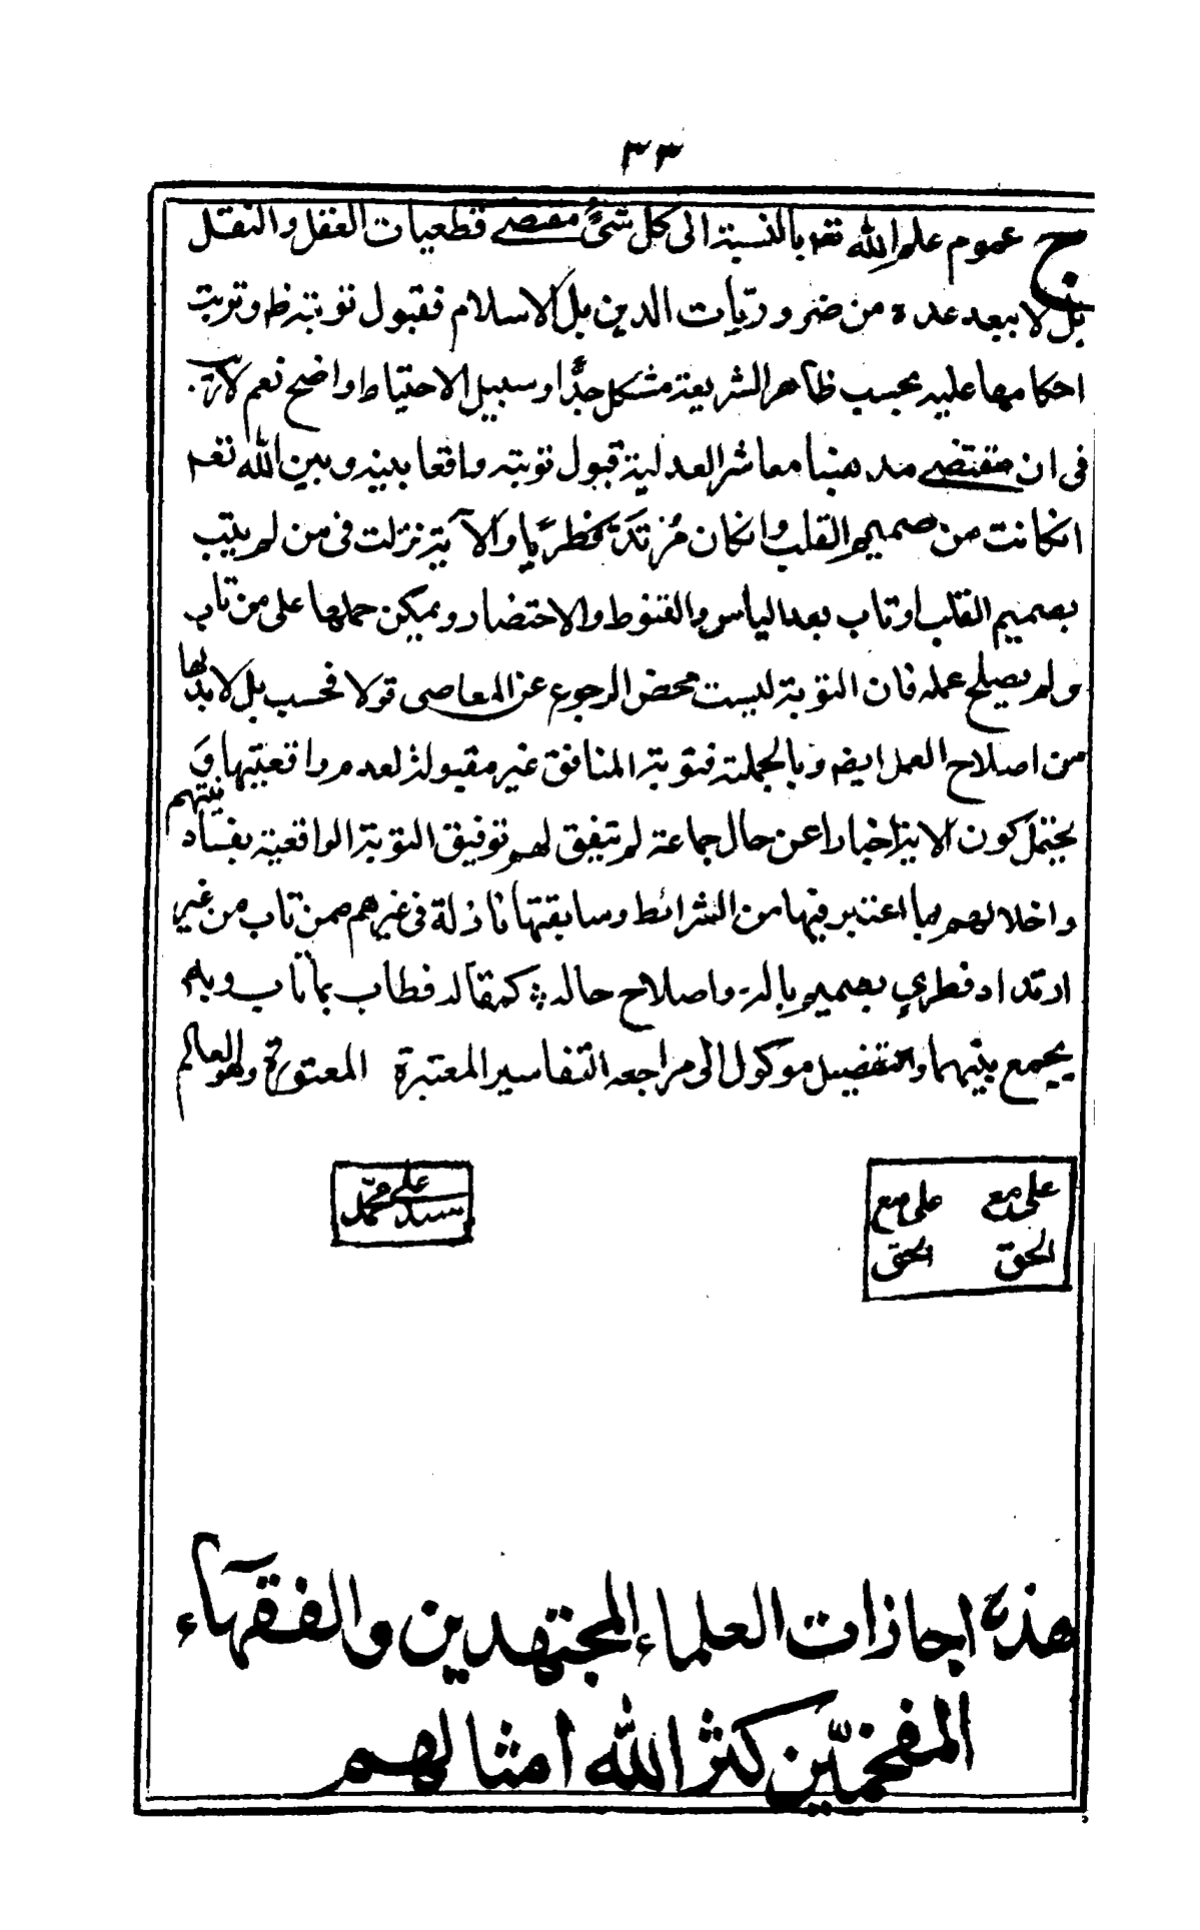 ٣٣
ج عموم علم الله تعم بالنسبة الى كل شئ مقتضے قطعيات العقل والنقل
بل لا يبعد عده من ضروريات الدين بل الاسلام فقبول توبته ظ و ترتيب
احكامها عليه بحسب ظاهر الشريعة مشكل جدًّا وسبيل الاحتياط واضح نعم لا ريب
فى ان مقتضے مذهبنا معاشر العدلية قبول توبته واقعا بينه وبين الله تعم
انكانت من صميم القلب وانكان مُرتدّة فطريًا والآية نزلت فى من لم يتب
بصميم القلب او تاب بعد الياس والقنوط والاحتضار ويمكن حملها على من تاب
ولم يصلح عمله فان التوبة ليست محض الرجوع عن المعاصى قولا فحسب بل لا بد لها
من اصلاح العمل ايضم وبالجملة فتوبة المنافق غير مقبولة لعدم واقعيتها وَ
يحتمل كون الاية اخبارا عن حال جماعة لم يتفق لهم توفيق التوبة الواقعية بفساد نيتهم
واخلالهم بما اعتبر فيها من الشرائط وسابقتها نازلة فى غيرهم ممن تاب من غير
ارتداد فطري بصميم باله واصلاح حاله كمقاله فطاب بما تاب وبه
يجمع بينهما والتفصيل موكول الى مراجعه التفاسير المعتبرة المعتورة وهو العالم
على مع الحق على مع الحق
سيد على محمد
هذه اجازات العلماء المجتهدين والفقهاء
المفخمين كثر الله امثالهم